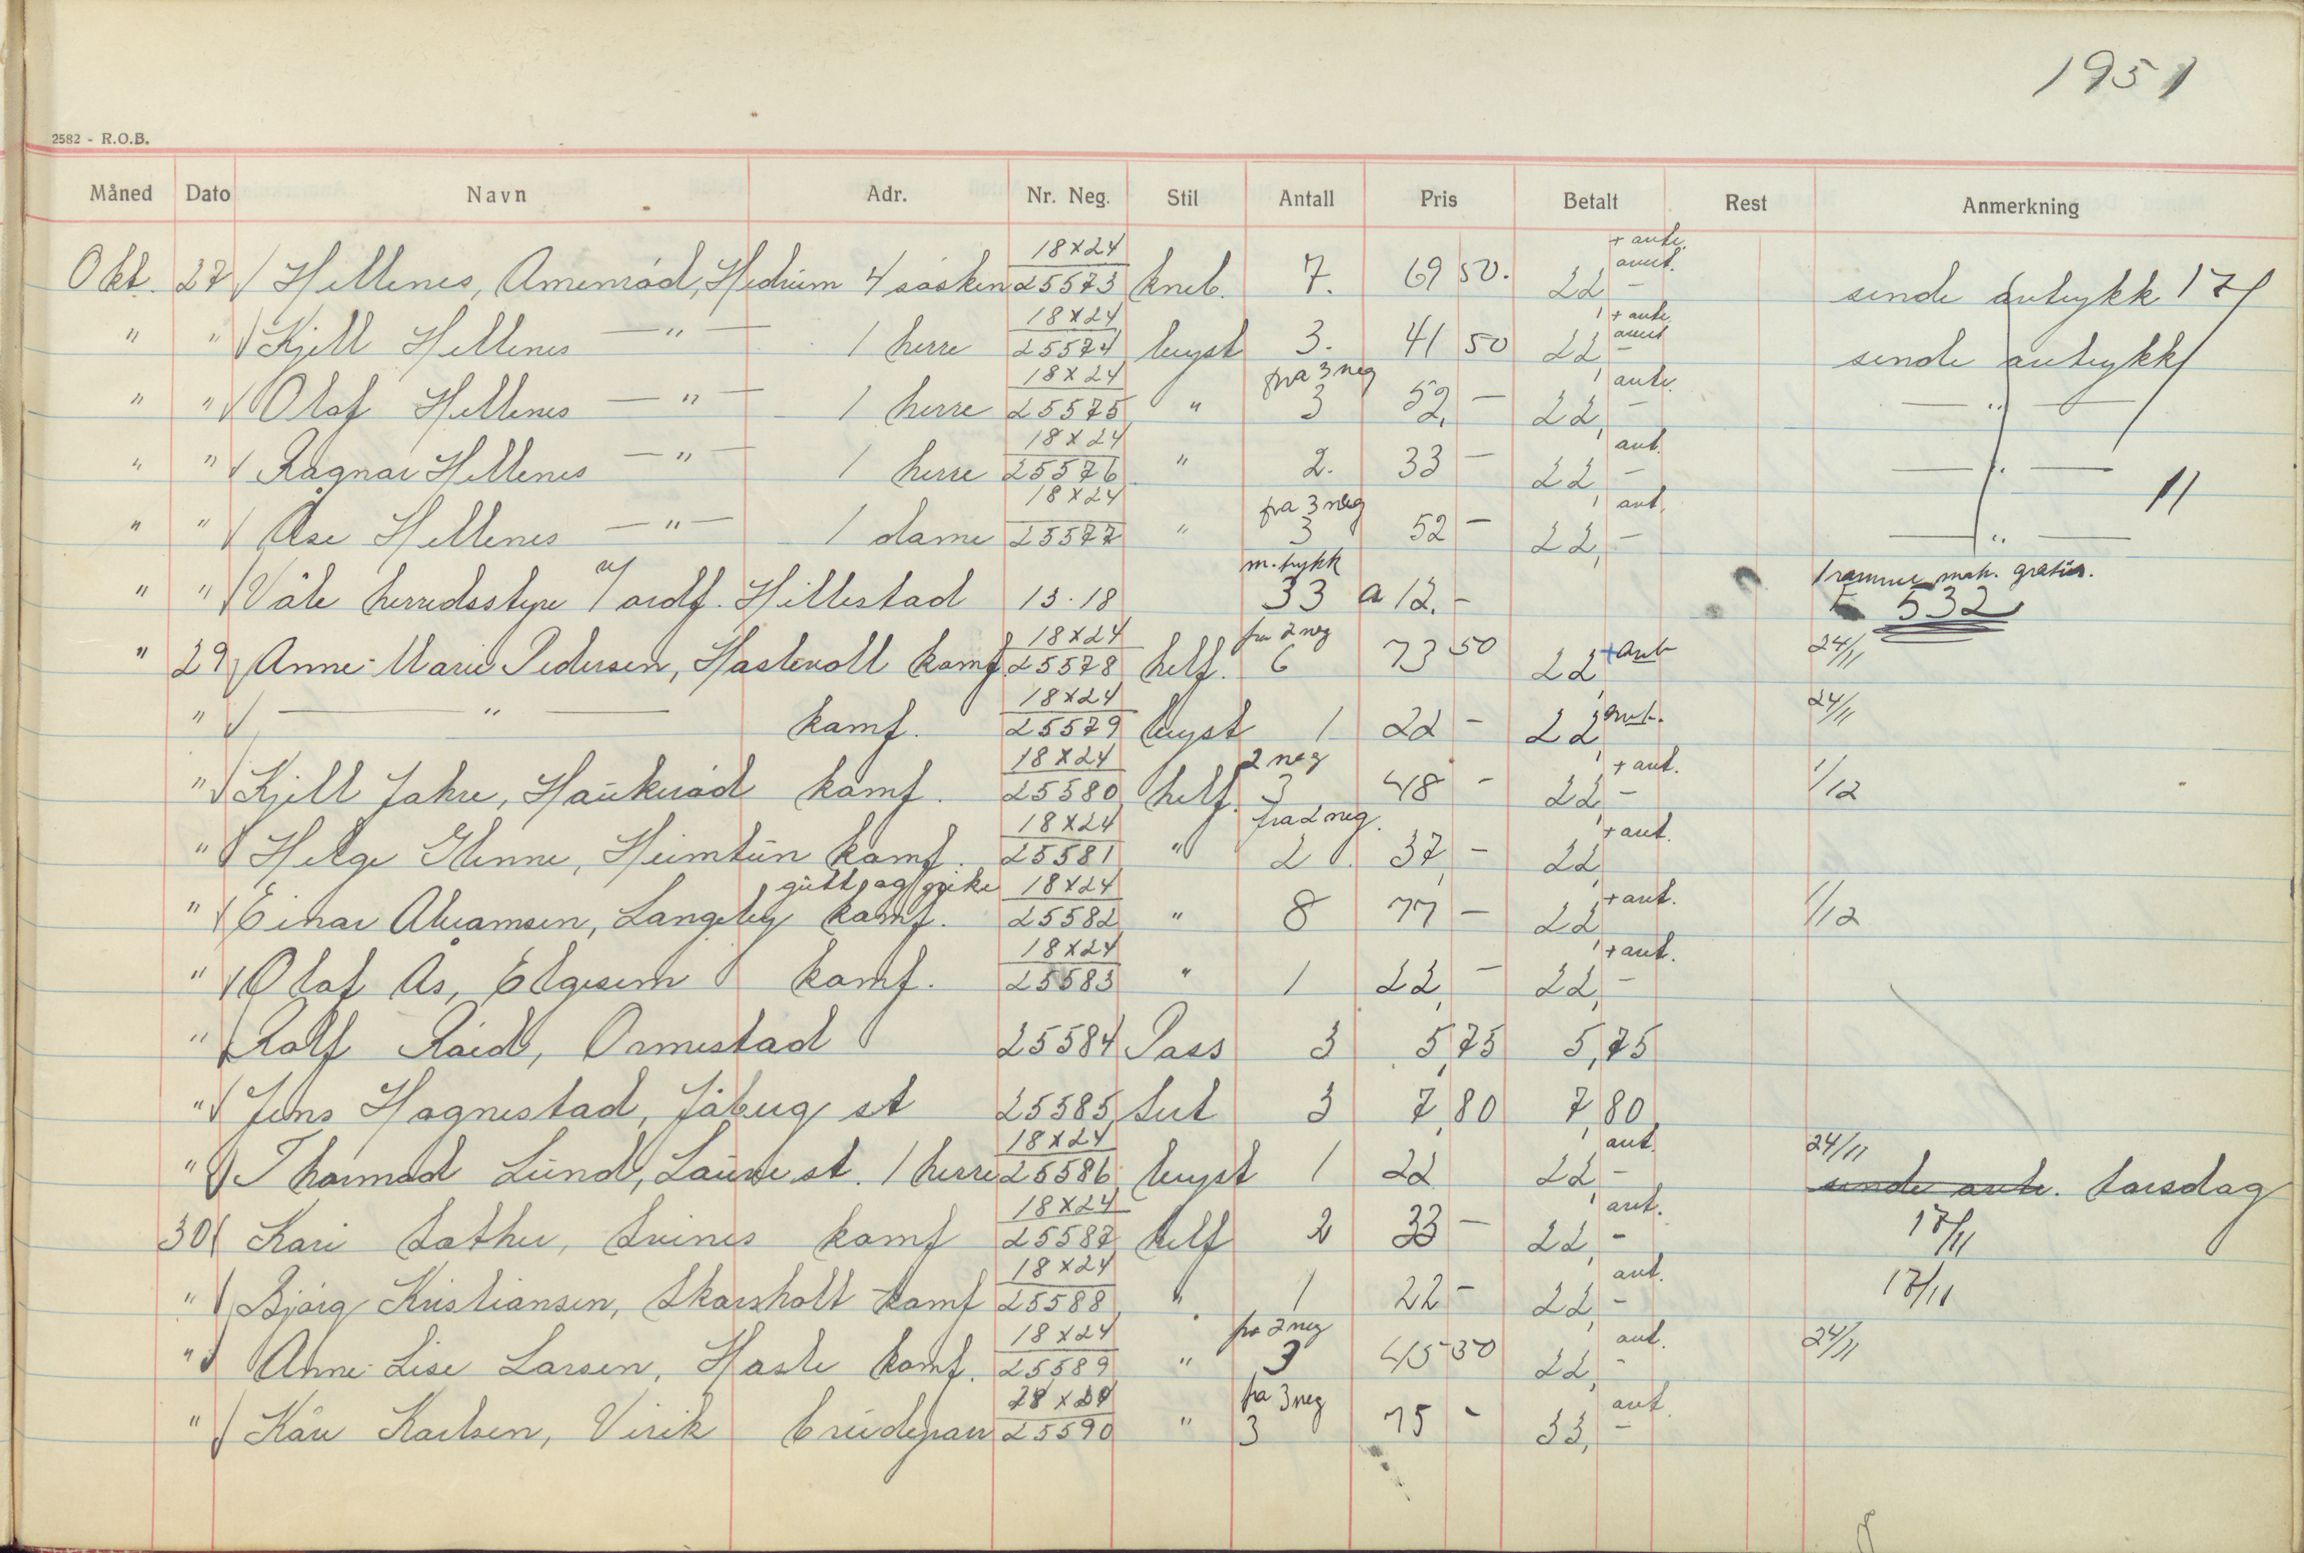 1951
2582 - R.O.B.
Måned Dato Navn Adr. Nr. Neg. Stil Antall Pris Betalt Rest Anmerkning
18x24 + avtr.
Okt. 27 Hellenes, Amenrød, Hedrum 4 søsken 25573 kneb. 7. 69 50. 22,- avent. sende avtrykk 17/
18x24 + avtr.
" " Kjell Hellenes — " — 1 herre 25574 bryst 3. 41 50 22,- avent sende avtrykk
18x24 fra 3 neg avtr.
" " Olaf Hellenes — " — 1 herre 25575 " 3 52,- 22,- — " —
18x24 avt.
" " Ragnar Hellenes — " — 1 herre 25576 " 2. 33 - 22,- — " — 11
18x24 fra 3 neg avt.
" " Åse Hellenes — " — 1 dame 25577 " 3 52 - 22,- — " —
m. trykk 1 ramme mah. gratis.
" " Våle herredsstyre v/ ordf. Hillestad 13.18 33 a 12.- 532
18x24 fra 2 neg
" 29 Anne-Marie Pedersen, Haslevoll komf. 25578 helf. 6 73 50 22, + avt. 24/11
18x24
" — " — komf. 25579 bryst 1 22 - 22, avt. 24/11
18x24 2 neg + avt.
" Kjell Jahre, Haukerød komf. 25580 helf. 3 48 - 22,- 1/12
18x24 fra 2 neg. + avt.
" Helge Glenne, Heimtun komf. 25581 " 2 37,- 22,
gutt og pike 18x24 + avt.
" Einar Abramsen, Langeby komf. 25582 " 8 77 - 22, 1/12
18x24 + avt.
" Olaf Ås, Elgesem komf. 25583 " 1 22,- 22,-
" Rolf Röed, Ormestad 25584 Pass 3 5,75 5,75
" Jens Hagnestad, Jåberg st 25585 Sert 3 7,80 7,80
18x24 avt. 24/11
" Thormod Lund, Lauve st. 1 herre 25586 bryst 1 22 22,- sende avtr. torsdag
18x24 avt.
30 Kari Sather, Svines komf 25587 helf 2 33 - 22,- 17/11
18x24 avt.
" Bjørg Kristiansen, Skorsholt komf 25588 " 1 22 - 22,- 17/11
18x24 fra 2 neg avt.
" Anne-Lise Larsen, Hasle komf. 25589 " 3 45 30 22,- 24/11
18x24 fra 3 neg avt.
" Kåre Karlsen, Virik brudepar 25590 " 3 75 - 33,-